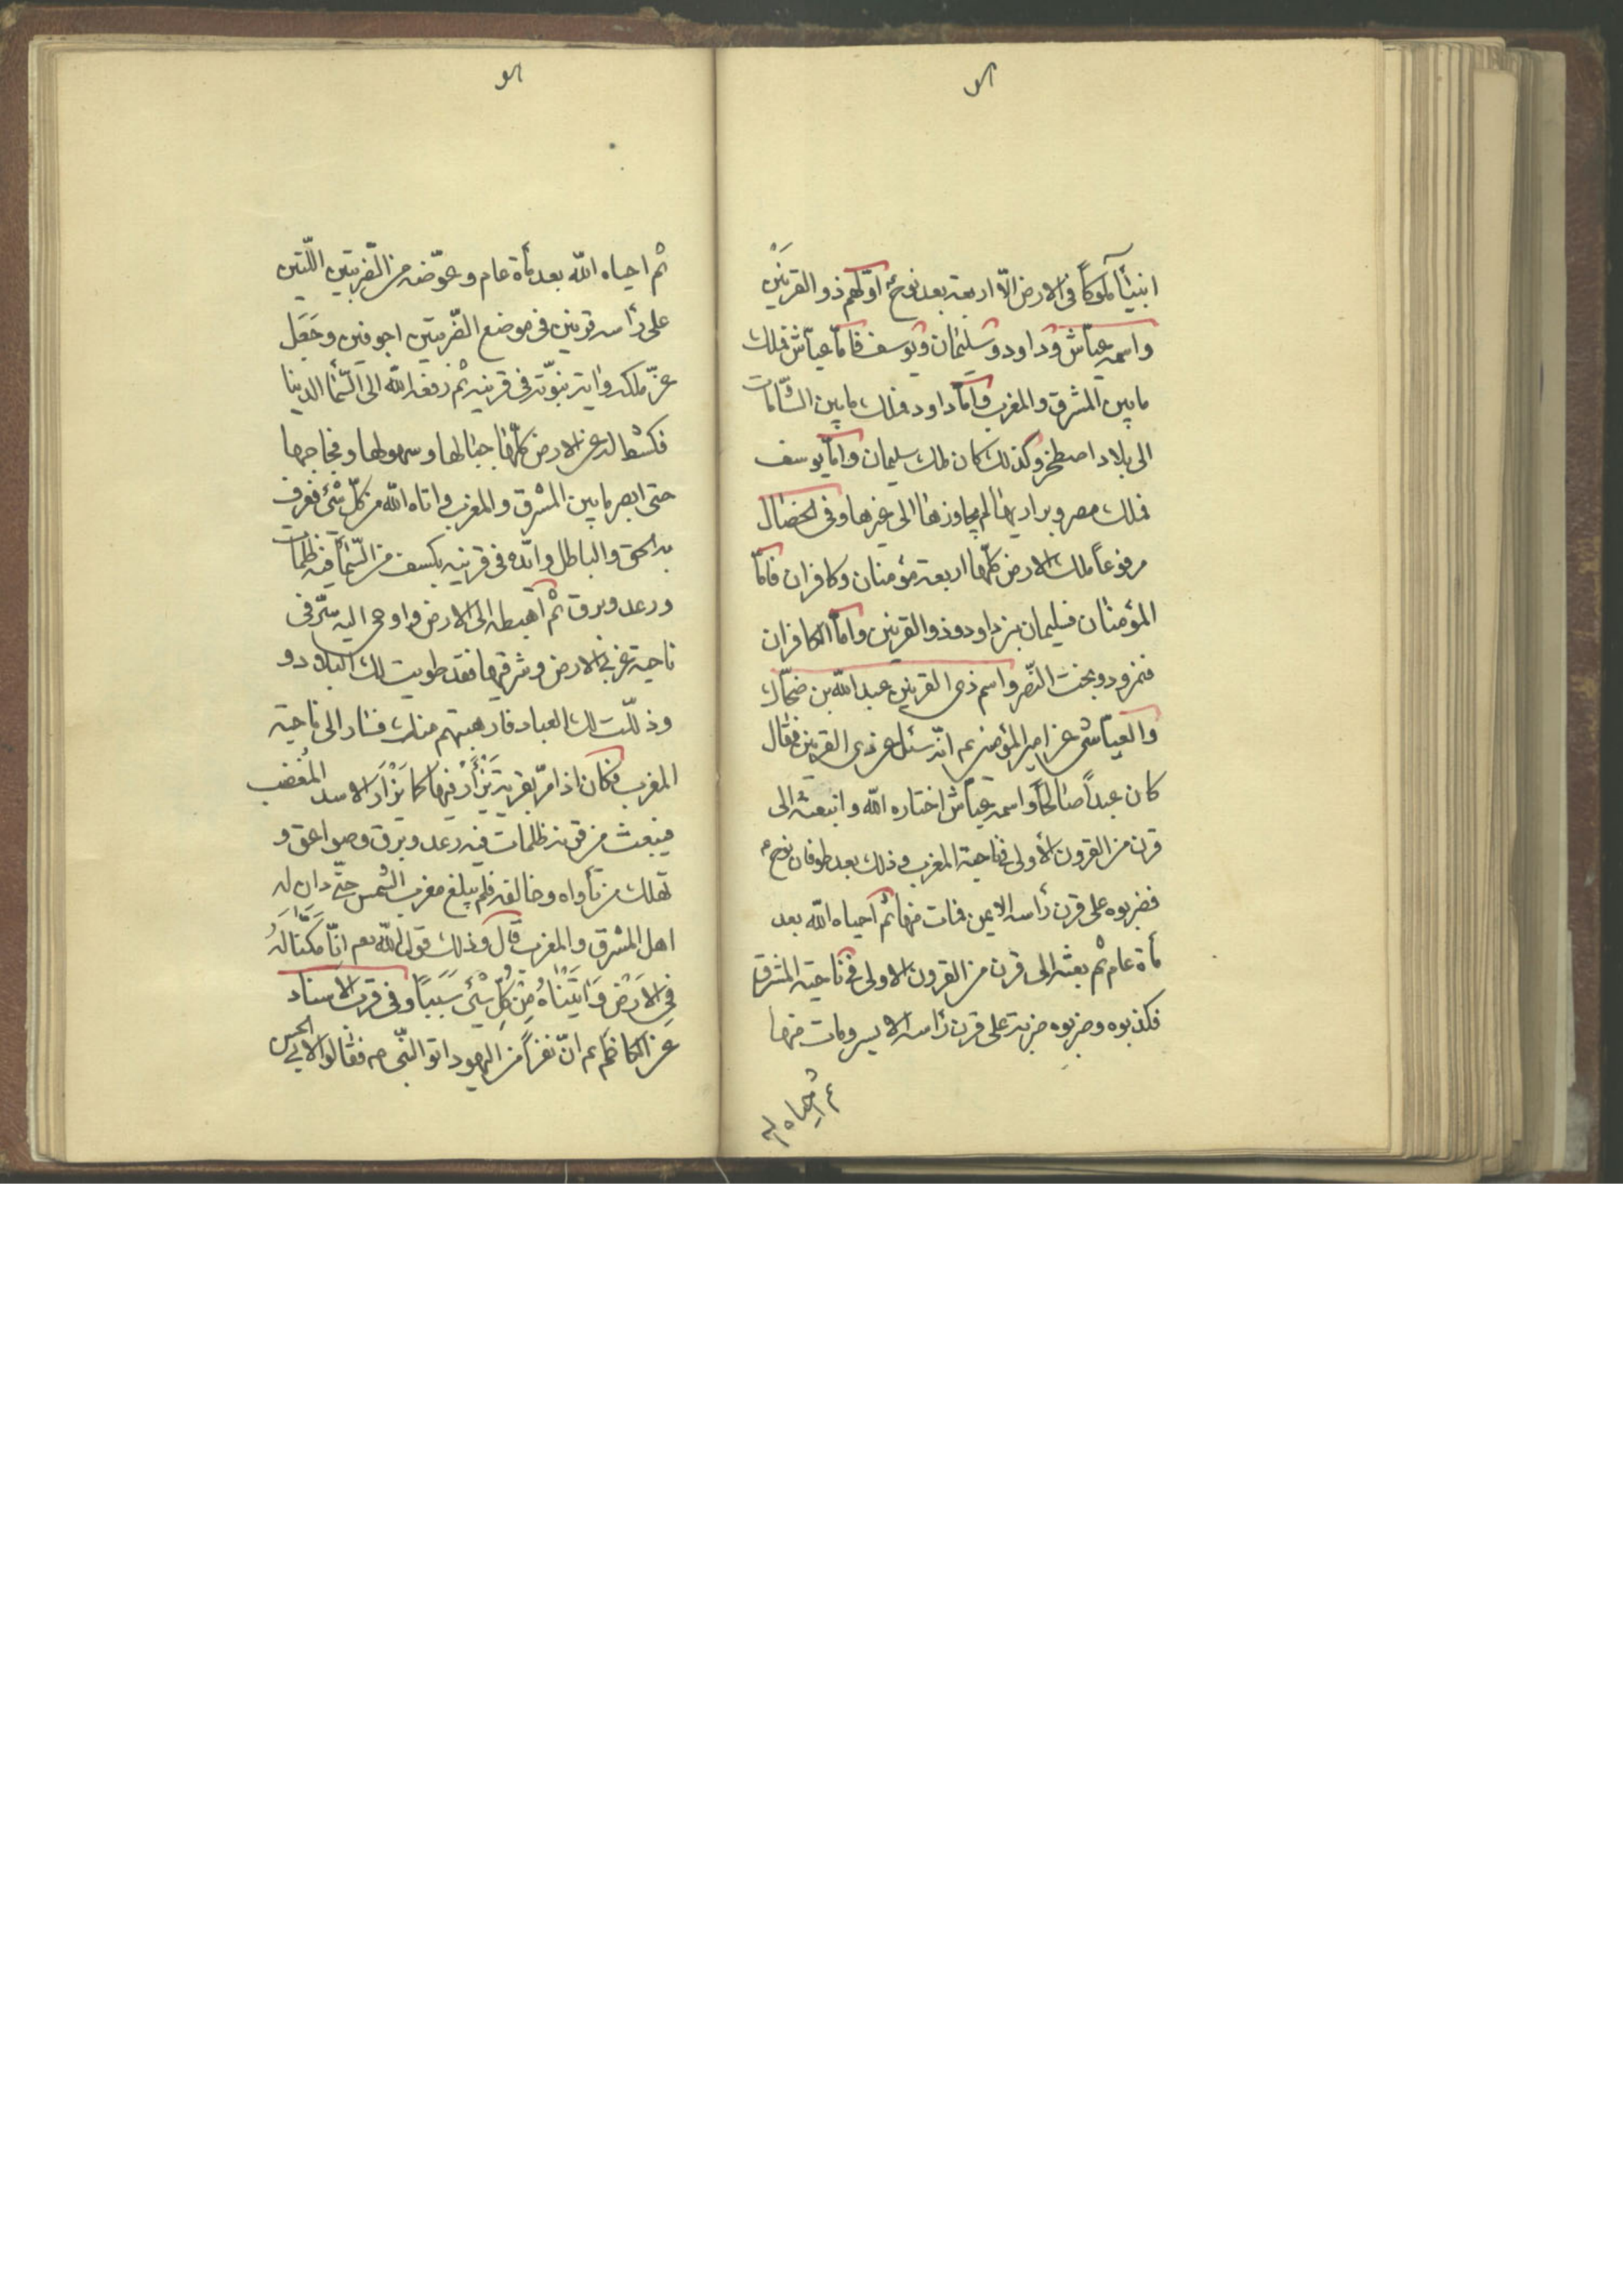 انبيآء ملوكاً فى الارض الّا اربعة بعد نوح اوّلهم ذو القرنَيْن
واسمه عيّاش وداود وسليمان ويوسف فامّا عيّاش فملك
مابين المشرق والمغرب وامّا داود فملك مابين الشّامات
الى بلاد اصطخر وكذلك كان ملك سليمان وامّا يوسف
فملك مصر وبراريها لم يجاوزها الى غيرها وفى الخصال
مرفوعاً ملك الارض كلّها اربعة مؤمنان وكافران فامّا
المؤمنان فسليمان بن داود وذو القرنين وامّا الكافران
فنمرود وبخت النّصر واسم ذى القرنين عبد اللّه بن ضحّاك
والعيّاشى عن امير المؤمنين عم انّه سئل عن ذى القرنين فقال
كان عبداً صالحاً واسمه عيّاش اختاره اللّه وانبعثه الى
قرن من القرون الأولى فى ناحية المغرب وذلك بعد طوفان نوح ع
فضربوه على قرن رأسه الايمن فمات منها ثم احياه اللّه بعد
مأة عام ثم بعثه الى قرن من القرون الاولى فى ناحية المشرق
فكذبوه وضربوه ضربة على قرن رأسه الايسر ومات منها
ثم احياه الله
ثم احياه اللّه بعد مأة عام وعوّضه من الضّربتين اللّتين
على رأسه قرنين فى موضع الضّربتين اجوفين وجَعَل
عزّ ملكه واية نبوّته فى قرنيه ثم رفعه اللّه الى السّمآء الدنيا
فكشط له عن الارض كلّها جبالها وسهولها وفجاجها
حتى ابصر مابين المشرق والمغرب واتاه اللّه من كلّ شئ فعرف
به الحق والباطل وايّده فى قرنيه بكسف من السّمآء فيه ظلمات
ورعد وبرق ثم اهبطه الى الارض واوحى اليه سِرْ فى
ناحية غربى الارض وشرقيها فقد طويت لك البلاد و
وذلّلت لك العباد فارهبتهم منك فسار الى ناحية
المغرب فكان اذا مرّ بقرية يَزْأَرُ فيها كما يَزْأَر الاسد المُغضب
فينبعث من قرنيه ظلمات فيه رعد وبرق وصواعق و
تهلك من ناواه وخالفه فلم يبلغ مغرب الشمس حتّى دان له
اهل المشرق والمغرب قال وذلك قول اللّه تعم انّا مَكَّنّا لَهُ
فِى الارَضْ وَاتَيْنَاهُ مِنْ كُلِّ شْئٍ سَبَباً وفى قرب الاسناد
عن الكاظم عم انّ نفراً من اليهود اتوا النّبى ص فقالوا لابى الحسن